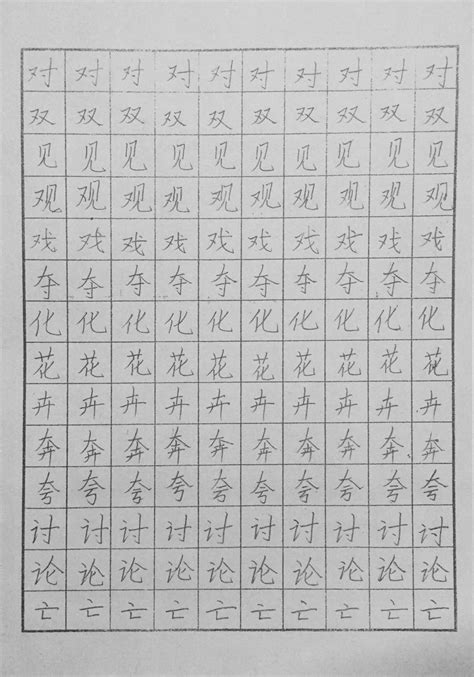 对对对对对对对对对对
双双双双双双双双双双
见见见见见见见见见见
观观观观观观观观观观
戏戏戏戏戏戏戏戏戏戏
夺夺夺夺夺夺夺夺夺夺
化化化化化化化化化化
花花花花花花花花花花
卉卉卉卉卉卉卉卉卉卉
奔奔奔奔奔奔奔奔奔奔
夸夸夸夸夸夸夸夸夸夸
讨讨讨讨讨讨讨讨讨讨
论论论论论论论论论论
亡亡亡亡亡亡亡亡亡亡